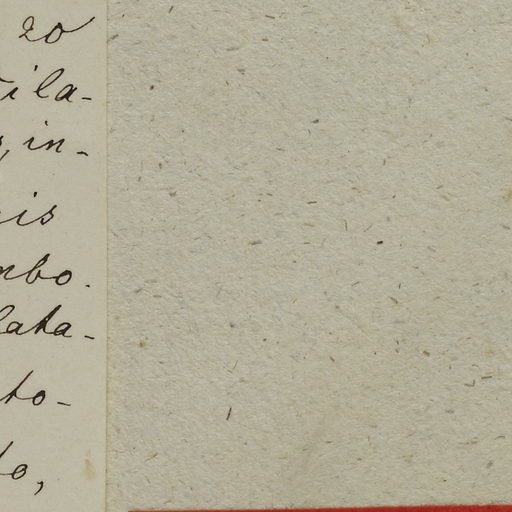 20
ila-
in-
is
mbo.
lata-
to-
to,